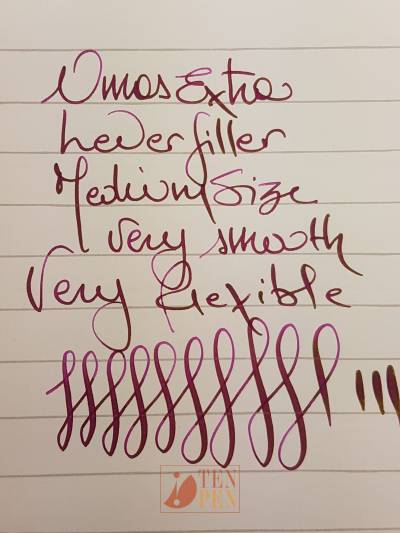 Omas Extra
Lever filler
Medium Size
Very smooth
Very flexible
TEN
PEN